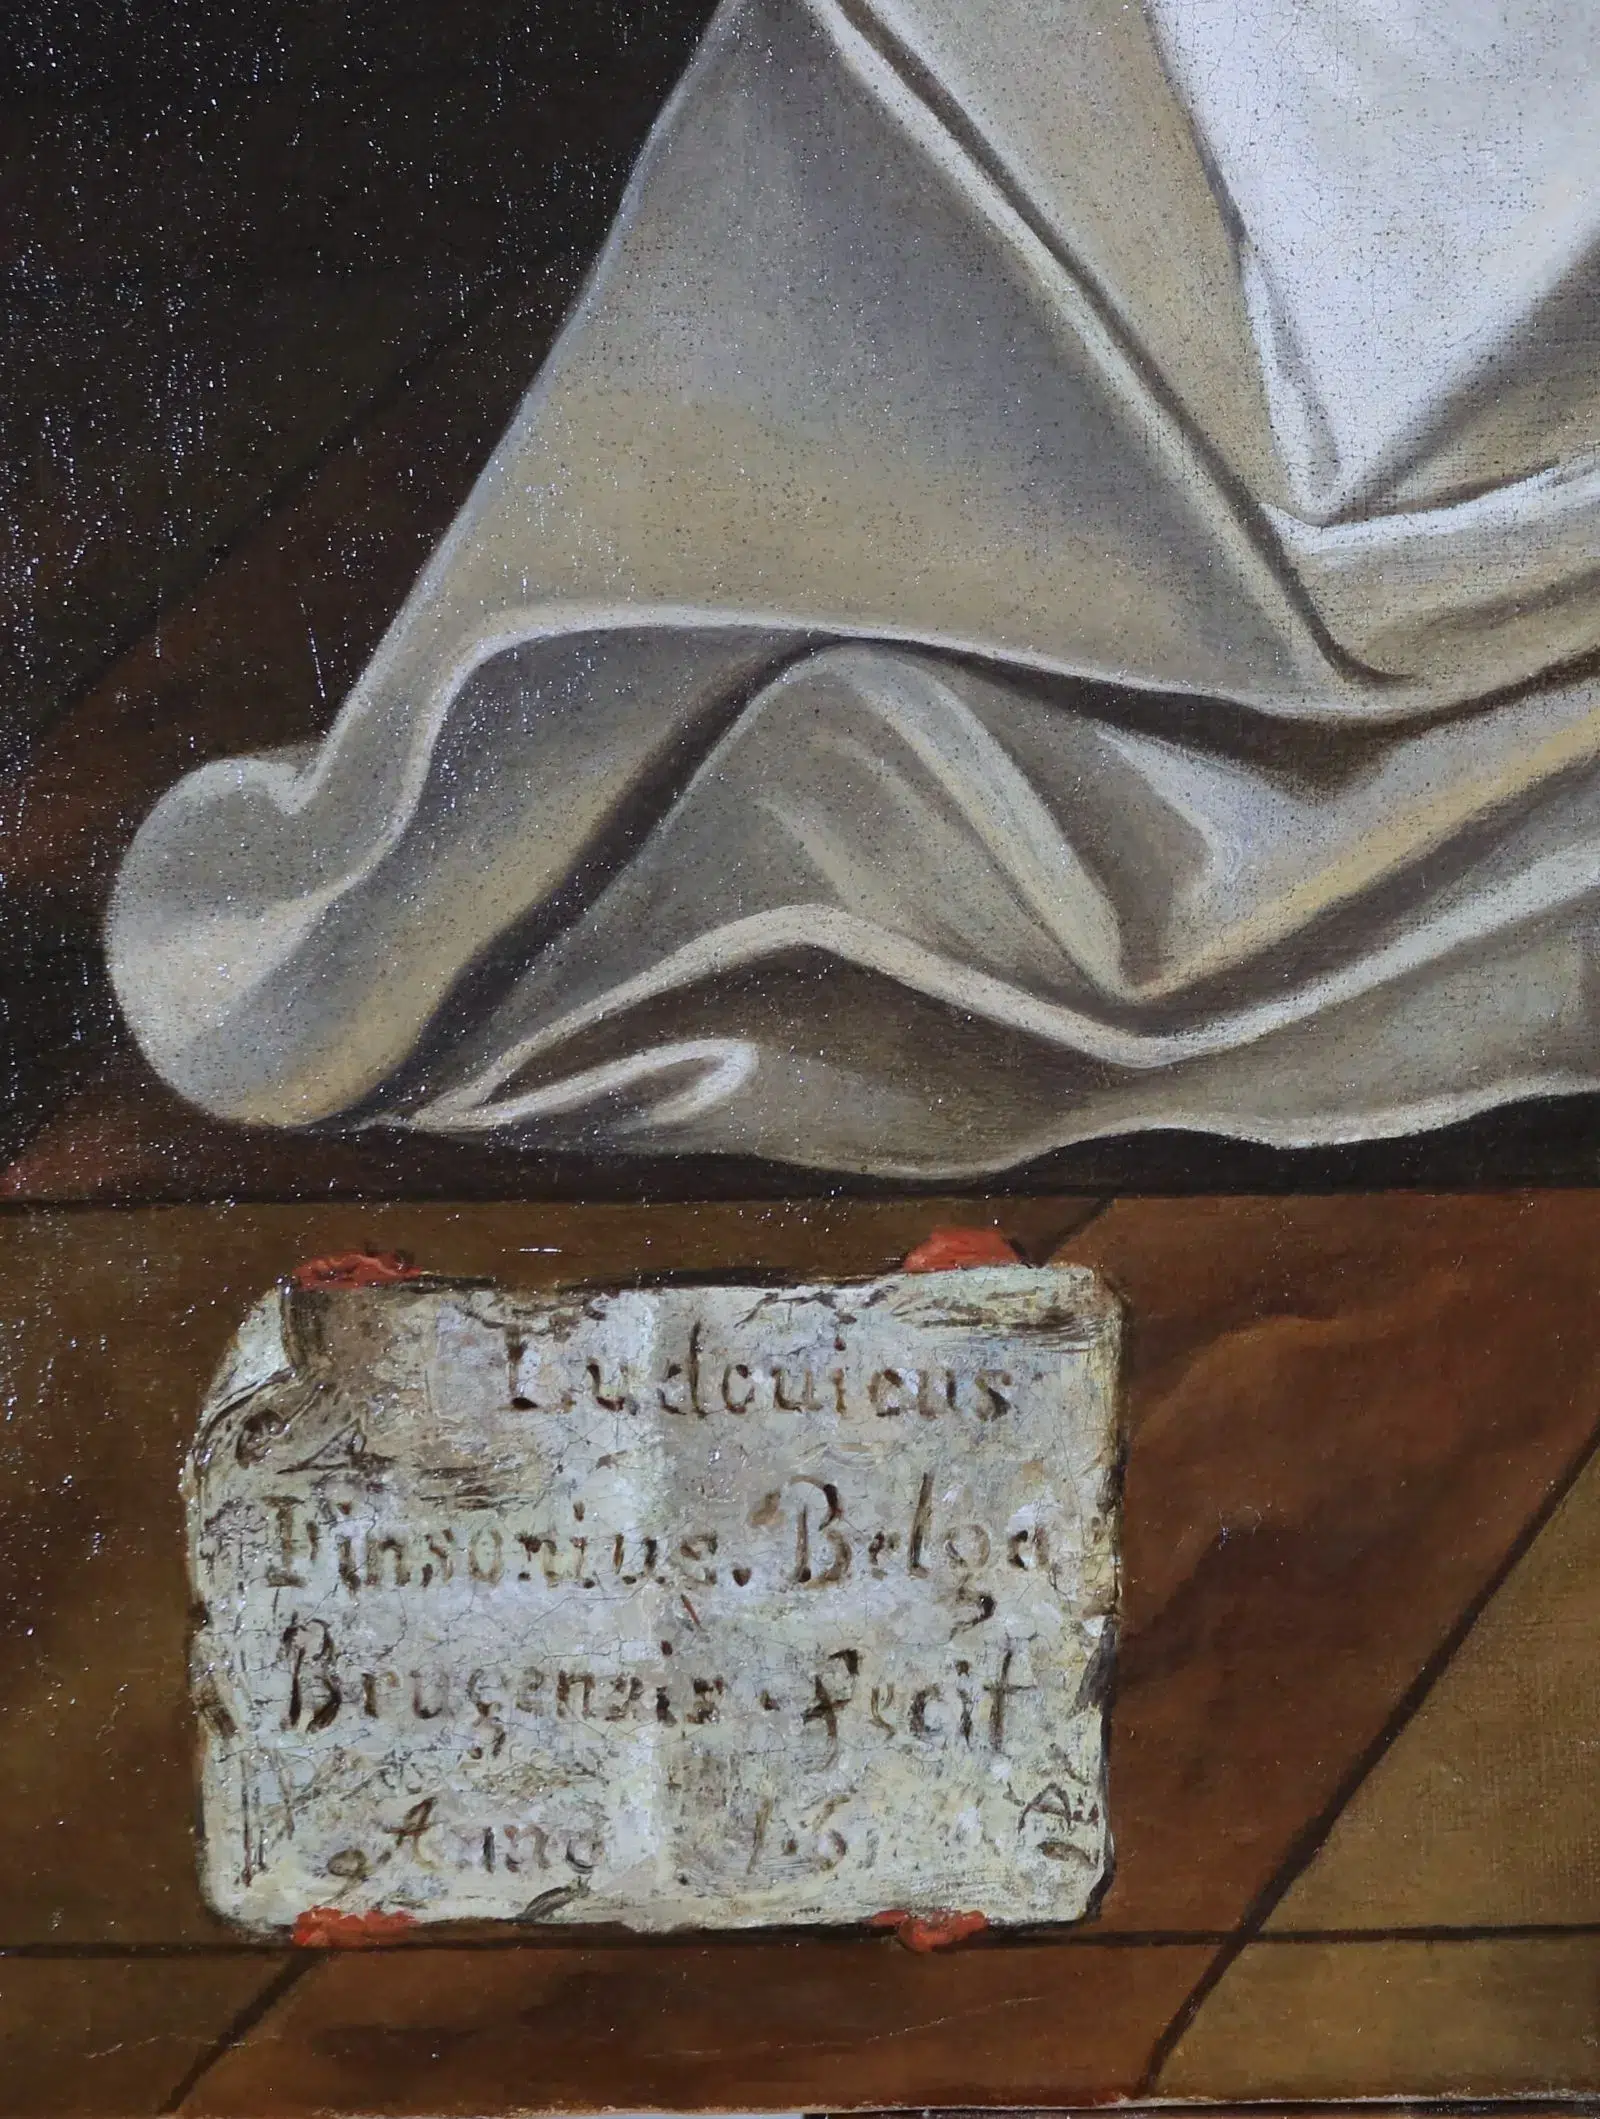 Ludouicus
Finsonius. Belga
Brugensis. fecit
Anno 161